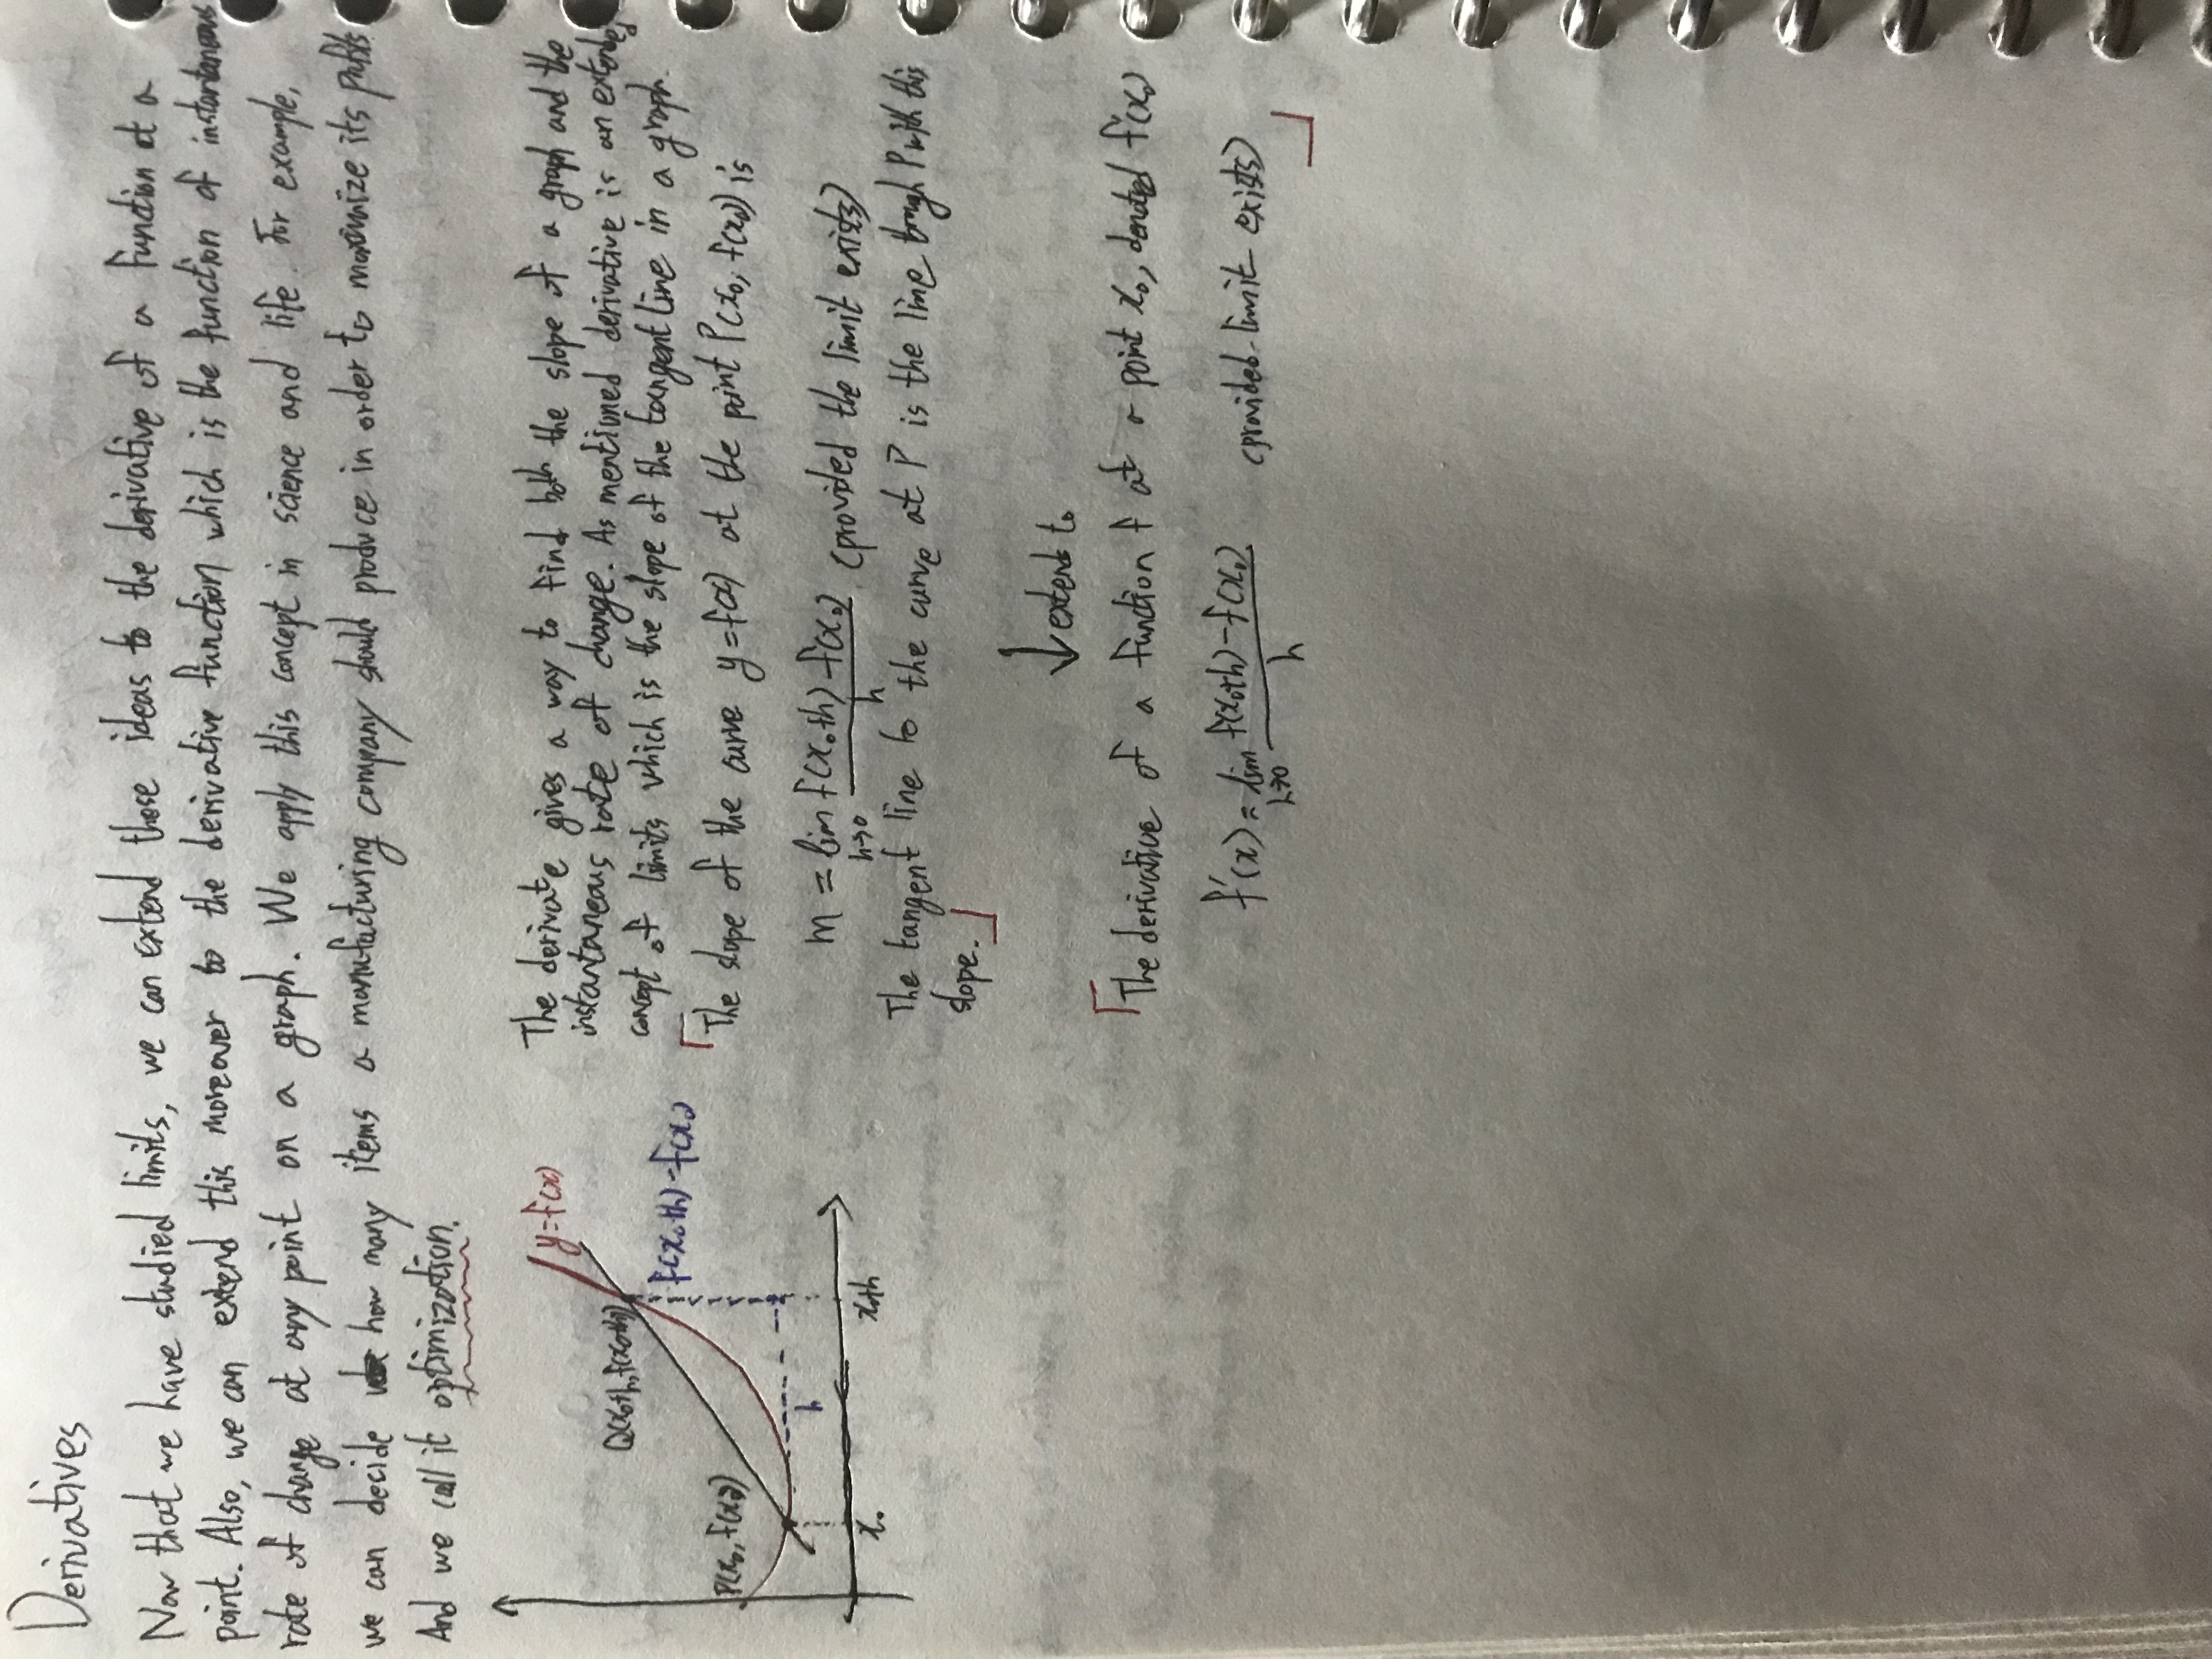 Derivatives
Now that we have studied limits, we can extend those ideas to the derivative of a function at a
point. Also, we can extend this moreover to the derivative function which is the function of instantaneous
rate of change at any point on a graph. We apply this concept in science and life. For example,
we can decide how many items a manufacturing company should produce in order to maximize its profits
And we call it optimization.
y=f(x)
Q(x₀+h, f(x₀+h))
f(x₀+h)-f(x₀)
P(x₀, f(x₀))
h
x₀
x₀+h
The derivate gives a way to find both the slope of a graph and the
instantaneous rate of change. As mentioned derivative is an extended
concept of limits which is the slope of the tangent line in a graph.
「The slope of the curve y=f(x) at the point P(x₀, f(x₀)) is
m = lim h→0 f(x₀+h)-f(x₀) / h (provided the limit exists)
The tangent line to the curve at P is the line trough P with this
slope.」
↓ extend to
「The derivative of a function f at a point x₀, denoted f'(x₀)
f'(x) = lim h→0 f(x₀+h)-f(x₀) / h (provided limit exists)」